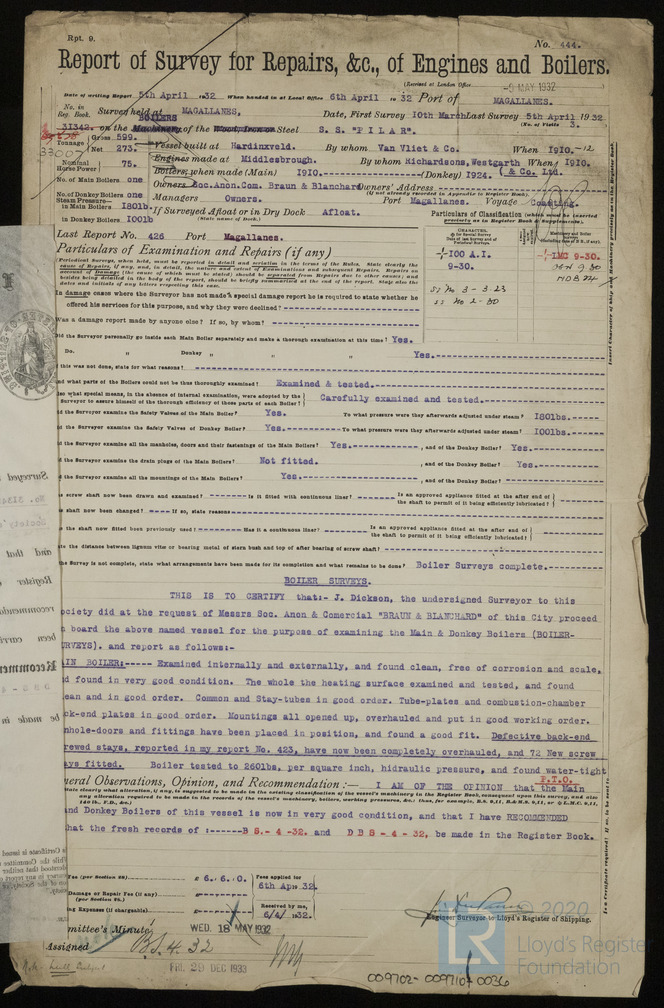 Rpt. 9.
No. 444.
Report of Survey for Repairs, &c., of Engines and Boilers.
(Received at London Office
-9 MAY 1932
Date of writing Report 5th April 1932 When handed in at Local Office 6th April 1932 Port of MAGALLANES.
No. in Reg. Book. Survey held at MAGALLANES, Date, First Survey 10th March Last Survey 5th April 1932
(No. of Visits 3.
31342. on the Machinery BOILERS of the Wood, Iron or Steel S. S. "PILAR".
33007
Tonnage Gross 599. Net 273. Vessel built at Hardinxveld. By whom Van Vliet & Co. When 1910.-12
Engines made at Middlesbrough. By whom Richardsons, Westgarth When 1910.
(& Co. Ltd.
Nominal Horse Power 75. Boilers, when made (Main) 1910.---------(Donkey) 1924.
No. of Main Boilers one Owners Soc.Anon.Com. Braun & Blanchard Owners' Address
(If not already recorded in Appendix to Register Book.)
No. of Donkey Boilers one Managers Owners. Port Magallanes. Voyage Coasting.
Steam Pressure in Main Boilers 180lb. If Surveyed Afloat or in Dry Dock Afloat.
(State name of Dock.)
in Donkey Boilers 100lb
Particulars of Classification (which must be inserted precisely as in Register Book & Supplement).
Last Report No. 426 Port Magallanes.
Particulars of Examination and Repairs (if any)
100 A.I.
9-30.
LMC 9-30.
SS No 3 - 3.23
In damage cases where the Surveyor has not made a special damage report he is required to state whether he
offered his services for this purpose, and why they were declined?
Was a damage report made by anyone else? If so, by whom?
Did the Surveyor personally go inside each Main Boiler separately and make a thorough examination at this time? Yes.
Do. " Donkey " " " " Yes.
if this was not done, state for what reasons?
and what parts of the Boilers could not be thus thoroughly examined? Examined & tested.
also what special means, in the absence of internal examination, were adopted by the
Surveyor to assure himself of the thorough efficiency of those parts of each Boiler? Carefully examined and tested.
Did the Surveyor examine the Safety Valves of the Main Boiler? Yes. To what pressure were they afterwards adjusted under steam? 180lbs.
Did the Surveyor examine the Safety Valves of Donkey Boiler? Yes. To what pressure were they afterwards adjusted under steam? 100lbs.
Did the Surveyor examine all the manholes, doors and their fastenings of the Main Boilers? Yes. , and of the Donkey Boiler? Yes.
Did the Surveyor examine the drain plugs of the Main Boilers? Not fitted. , and of the Donkey Boiler? Yes.
Did the Surveyor examine all the mountings of the Main Boilers? Yes. , and of the Donkey Boiler? Yes.
screw shaft now been drawn and examined? Is it fitted with continuous liner? Is an approved appliance fitted at the after end of
the shaft to permit of it being efficiently lubricated?
shaft now been changed? If so, state reasons
the shaft now fitted been previously used? Has it a continuous liner? Is an approved appliance fitted at the after end of
the shaft to permit of it being efficiently lubricated?
the distance between lignum vitæ or bearing metal of stern bush and top of after bearing of screw shaft?
the Survey is not complete, state what arrangements have been made for its completion and what remains to be done? Boiler Surveys complete.
BOILER SURVEYS.
THIS IS TO CERTIFY that:- J. Dickson, the undersigned Surveyor to this
ociety did at the request of Messrs Soc. Anon & Comercial "BRAUN & BLANCHARD" of this City proceed
board the above named vessel for the purpose of examining the Main & Donkey Boilers (BOILER-
URVEYS). and report as follows:-
IN BOILER:----- Examined internally and externally, and found clean, free of corrosion and scale,
d found in very good condition. The whole the heating surface examined and tested, and found
ean and in good order. Common and Stay-tubes in good order. Tube-plates and combustion-chamber
ck-end plates in good order. Mountings all opened up, overhauled and put in good working order.
nhole-doors and fittings have been placed in position, and found a good fit. Defective back-end
rewed stays, reported in my report No. 423, have now been completely overhauled, and 72 New screw
ays fitted. Boiler tested to 260lbs, per square inch, hidraulic pressure, and found water-tight
P.T.O.
neral Observations, Opinion, and Recommendation :— I AM OF THE OPINION that the Main
nd Donkey Boilers of this vessel is now in very good condition, and that I have RECOMMENDED
hat the fresh records of :------B S.- 4 -32. and D B S - 4 - 32, be made in the Register Book.
Fee (per Section 28) £ 6. 6. 0. Fees applied for
6th Apr 32.
Damage or Repair Fee (if any) £
(per Section 28.)
ing Expenses (if chargeable) £ Received by me,
6/4/1932.
Engineer Surveyor to Lloyd's Register of Shipping.
mittee's Minute WED. 18 MAY 1932
Assigned BS. 4. 32
FRI. 29 DEC 1933
009702-009710-0036
© 2020
LR
Lloyd's Register
Foundation